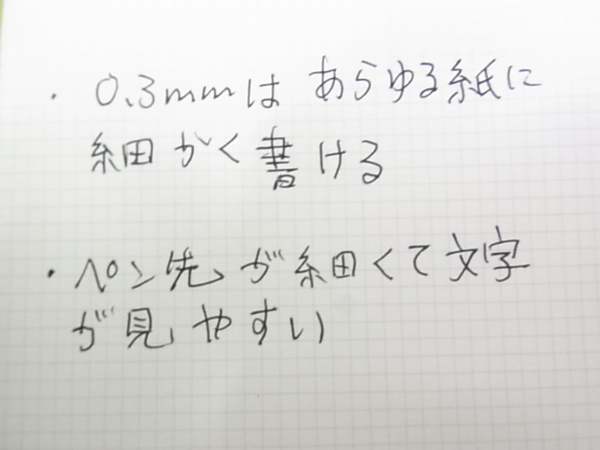 ・0.3mmは あらゆる紙に
細かく書ける
・ペン先が細くて文字
が見やすい